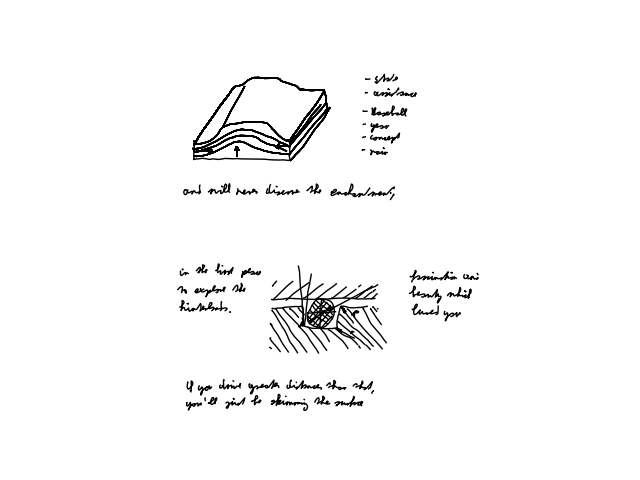 - state
- assistance
- Baseball
- year
- concept
- rain
and will never discover the enchantment,
in the first place
to explore the
hinterlands.
fascination and
beauty which
lured you
If you drive greater distances than that,
you'll just be skimming the surface